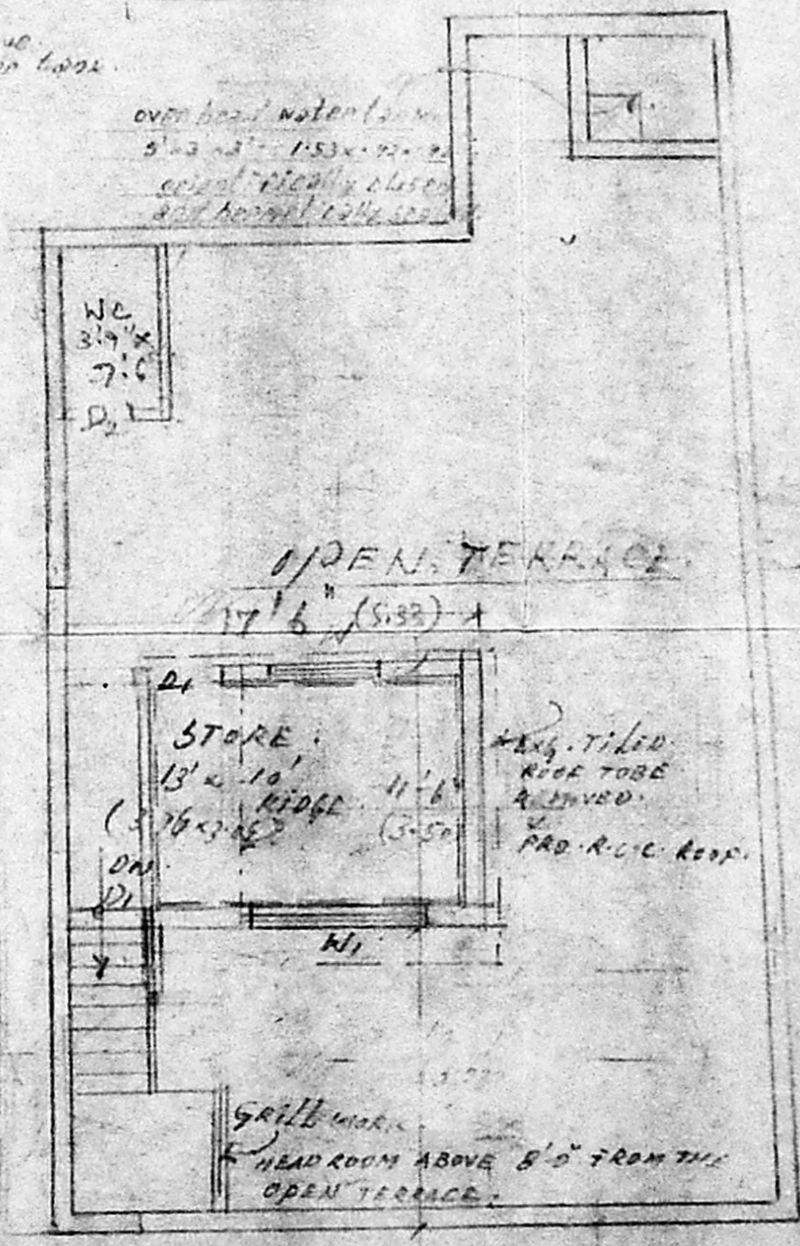 over head water
5' x 3' x 3' = 1.53 x .92 x .92
closed
and hermetically sealed
WC
3'.9" x
7'.6"
D2
OPEN TERRACE
17' 6" (5.33)
D1
STORE.
13' x 10'
RIDGE
11'-6"
(3.50)
TILED
ROOF TO BE
REMOVED.
PRO. R.C.C. ROOF.
DN.
D1
W1
GRILL WORK
HEAD ROOM ABOVE 8'.0" FROM THE
OPEN TERRACE.